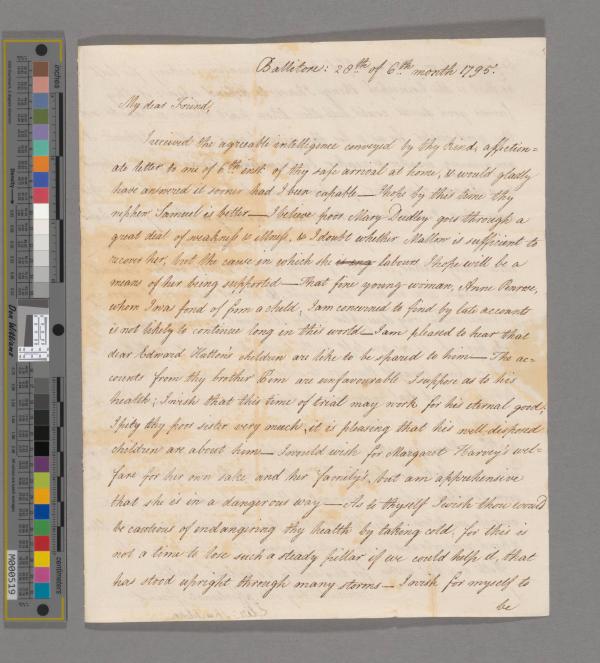 Ballitore: 28th of 6th month 1795.
My dear Friend,
I received the agreeable intelligence conveyed by thy kind, affection=
ate letter to me of 6th inst. of thy safe arrival at home, & would gladly
have answered it sooner had I been capable — I hope by this time thy
nephew Samuel is better — I believe poor Mary Dudley goes through a
great deal of weakness & illness, & I doubt whether Mallow is sufficient to
recover her, but the cause in which she labours I hope will be a
means of her being supported — That fine young woman, Anne
whom I was fond of from a child, I am concerned to find by late accounts
is not likely to continue long in this world — I am pleased to hear that
dear Edward Hatton's children are like to be spared to him — The ac=
counts from thy brother are unfavourable I suppose as to his
health; I wish that this time of trial may work for his eternal good;
I pity thy poor sister very much, it is pleasing that his well disposed
children are about him — I would wish for Margaret Harvey's wel=
fare for her own sake and her family's, but am apprehensive
that she is in a dangerous way — As to thyself I wish thou would
be cautious of endangering thy health by taking cold, for this is
not a time to lose such a steady pillar if we could help it, that
has stood upright through many storms — I wish for myself to
be
inches
centimetres
Don Williams
M000519